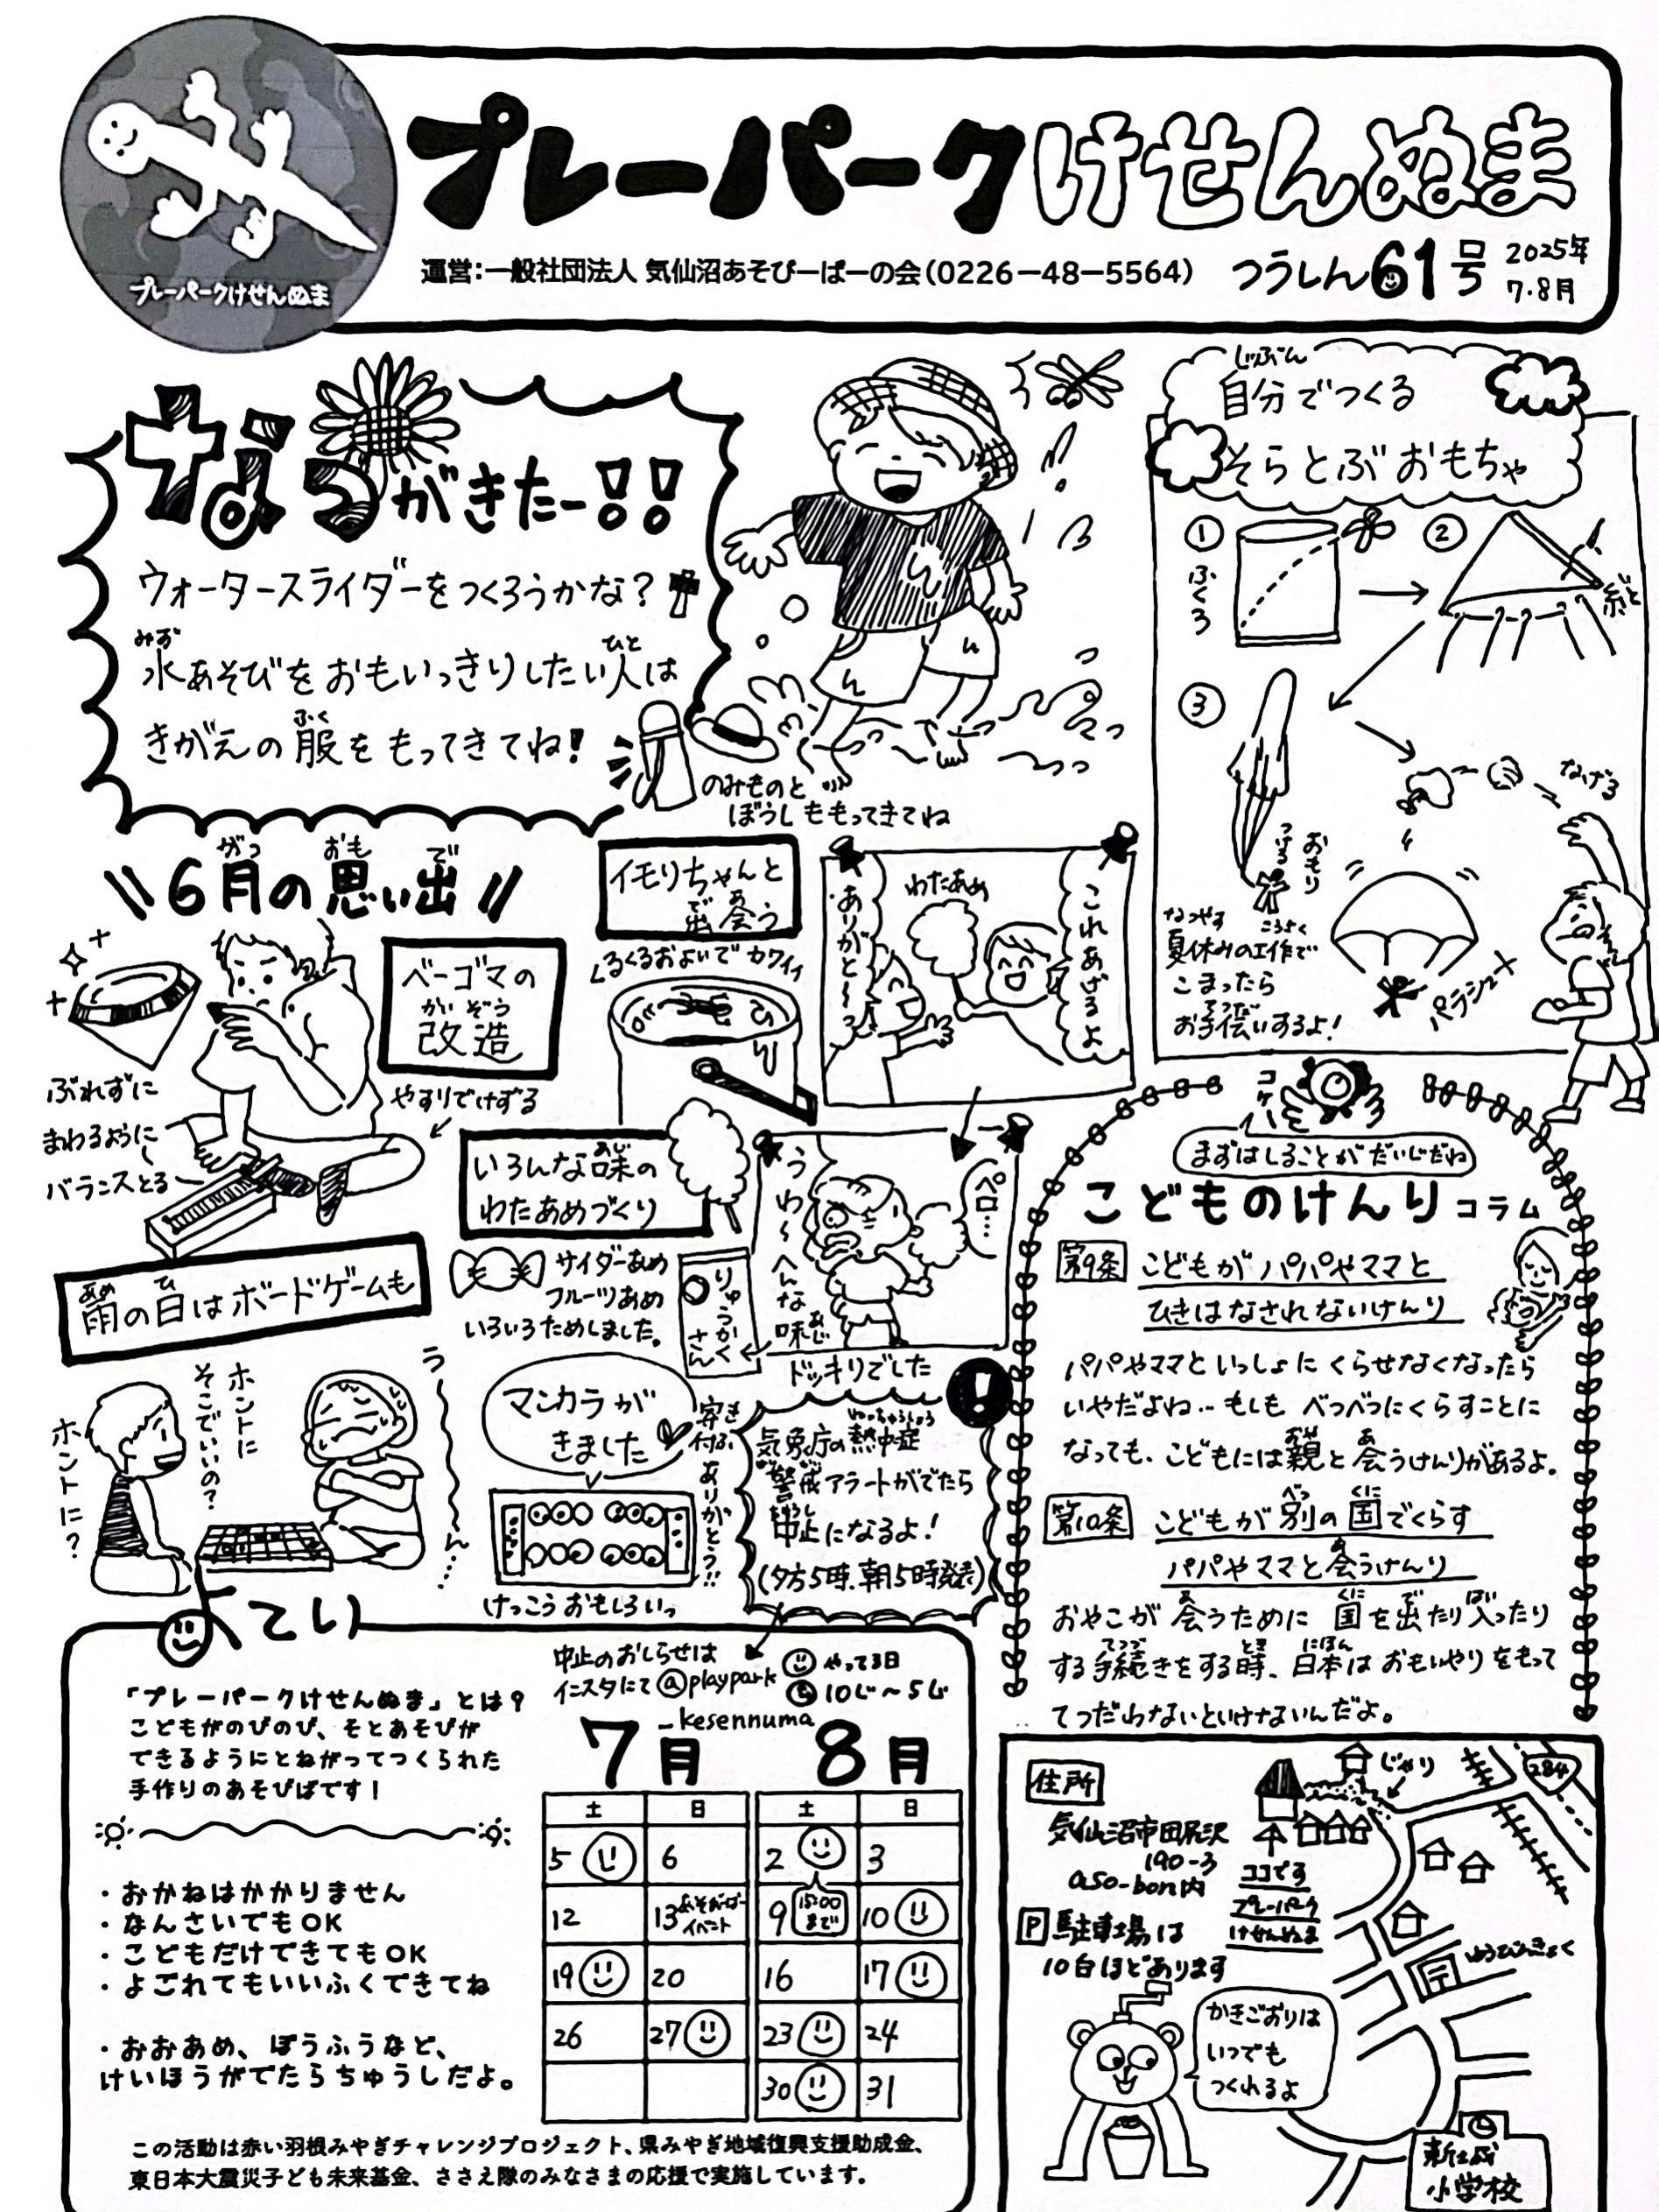 プレーパークけせんぬま
プレーパークけせんぬま
運営:一般社団法人 気仙沼あそびーばーの会(0226-48-5564)
つうしん61号
2025年
7・8月
なつがきたー!!
ウォータースライダーをつくろうかな?
水あそびをおもいっきりしたい人は
みず
ひと
きがえの服をもってきてね!
ふく
のみものと
ぼうしももってきてね
じぶん
自分でつくる
そらとぶおもちゃ
①
ふくろ
②
糸
いと
③
おもり
つける
なげる
パラシュート
なつやす
夏休みの工作で
こうさく
こまったら
お手伝いするよ!
てつだ
6月の思い出
がつ
おも
で
ベーゴマの
改造
かいぞう
ぶれずに
まわるように
バランスとる
やすりでけずる
イモリちゃんと
出会う
で
あ
くるくるおよいでカワイイ
わたあめ
これあげるよ
ありがと〜っ
いろんな味の
あじ
わたあめづくり
サイダーあめ
フルーツあめ
いろいろためしました。
りゅうかくさん
ペロ…
うわ〜へんな味
あじ
ドッキリでした
雨の日はボードゲームも
あめ
ひ
ホントにそこでいいの?
ホントに?
うーーん…
マンカラが
きました
寄き付ふありがとう!!
けっこうおもしろいっ
気象庁の熱中症
ねっちゅうしょう
警戒アラートがでたら
中止になるよ!
(夕方5時、朝5時発表)
コケー
まずはしることがだいじだね
こどものけんりコラム
第9条
こどもがパパやママと
ひきはなされないけんり
パパやママといっしょにくらせなくなったら
いやだよね…もしもべつべつにくらすことに
なっても、こどもには親と会うけんりがあるよ。
おや
あ
第10条
こどもが別の国でくらす
べつ
くに
パパやママと会うけんり
あ
おやこが会うために国を出たり入ったり
あ
くに
で
はい
する手続きをする時、日本はおもいやりをもって
てつづ
とき
にほん
てつだわないといけないんだよ。
てい
「プレーパークけせんぬま」とは?
こどもがのびのび、そとあそびが
できるようにとねがってつくられた
手作りのあそびばです!
・おかねはかかりません
・なんさいでもOK
・こどもだけできてもOK
・よごれてもいいふくできてね
・おおあめ、ぼうふうなど、
けいほうがでたらちゅうしだよ。
中止のおしらせは
インスタにて@playpark
_kesennuma
やってる日
10じ〜5じ
7月
土 日
5 6
12 13 あそびーばーイベント
19 20
26 27
8月
土 日
2 3
9 15:00まで 10
16 17
23 24
30 31
この活動は赤い羽根みやぎチャレンジプロジェクト、県みやぎ地域復興支援助成金、
東日本大震災子ども未来基金、ささえ隊のみなさまの応援で実施しています。
住所
気仙沼市田尻沢
190-3
aso-bon内
P 駐車場は
10台ほどあります
じゃり
284
ココです
プレーパーク
けせんぬま
ゆうびんきょく
かきごおりは
いつでも
つくれるよ
新城
小学校